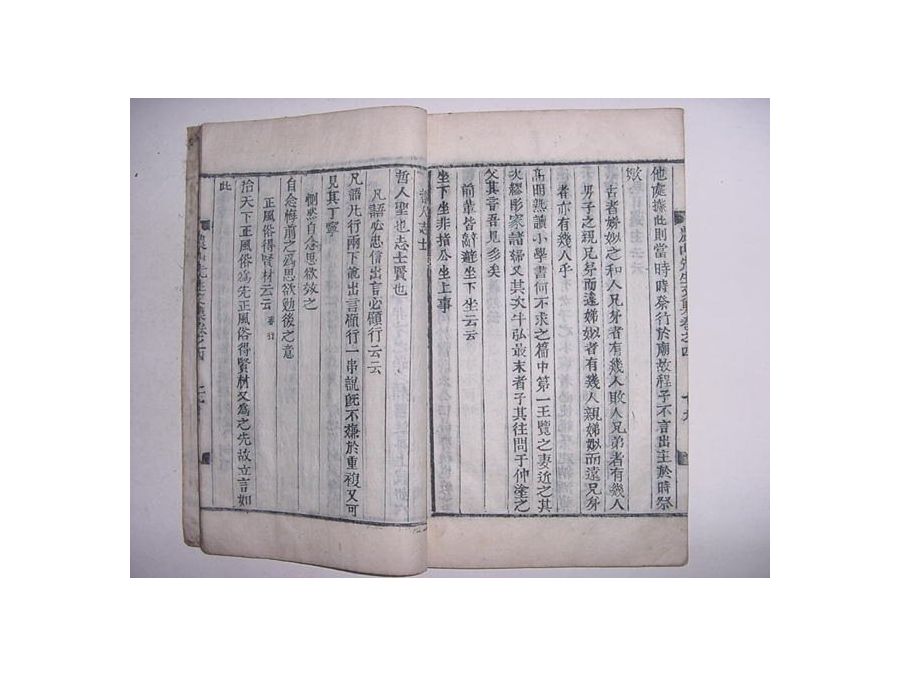 他處據此則當時時祭行於廟故程子不言出主於時祭
歟
古者娣姒之和人兄弟者有幾人敗人兄弟者有幾人
男子之親兄弟而遠娣姒者有幾人親娣姒而遠兄弟
者亦有幾人乎
高明熟讀小學書何不求之篇中第一王覽之妻近之其
次繆肜家諸婦又其次牛弘最末者子其往問于仲塗之
父其音吾見多矣
前輩皆辭避坐下坐云云
坐下坐非指公坐上事
哲人志士
哲人聖也志士賢也
凡語必忠信出言必顧行云云
凡語凡行兩下說出言顧行一串說旣不嫌於重複又可
見其丁寧
惻然自念思欲效之
自念悔前之爲思欲勉後之意
正風俗得賢材云云
治天下正風俗爲先正風俗得賢材又爲之先故立言如
此
先生文集卷之四